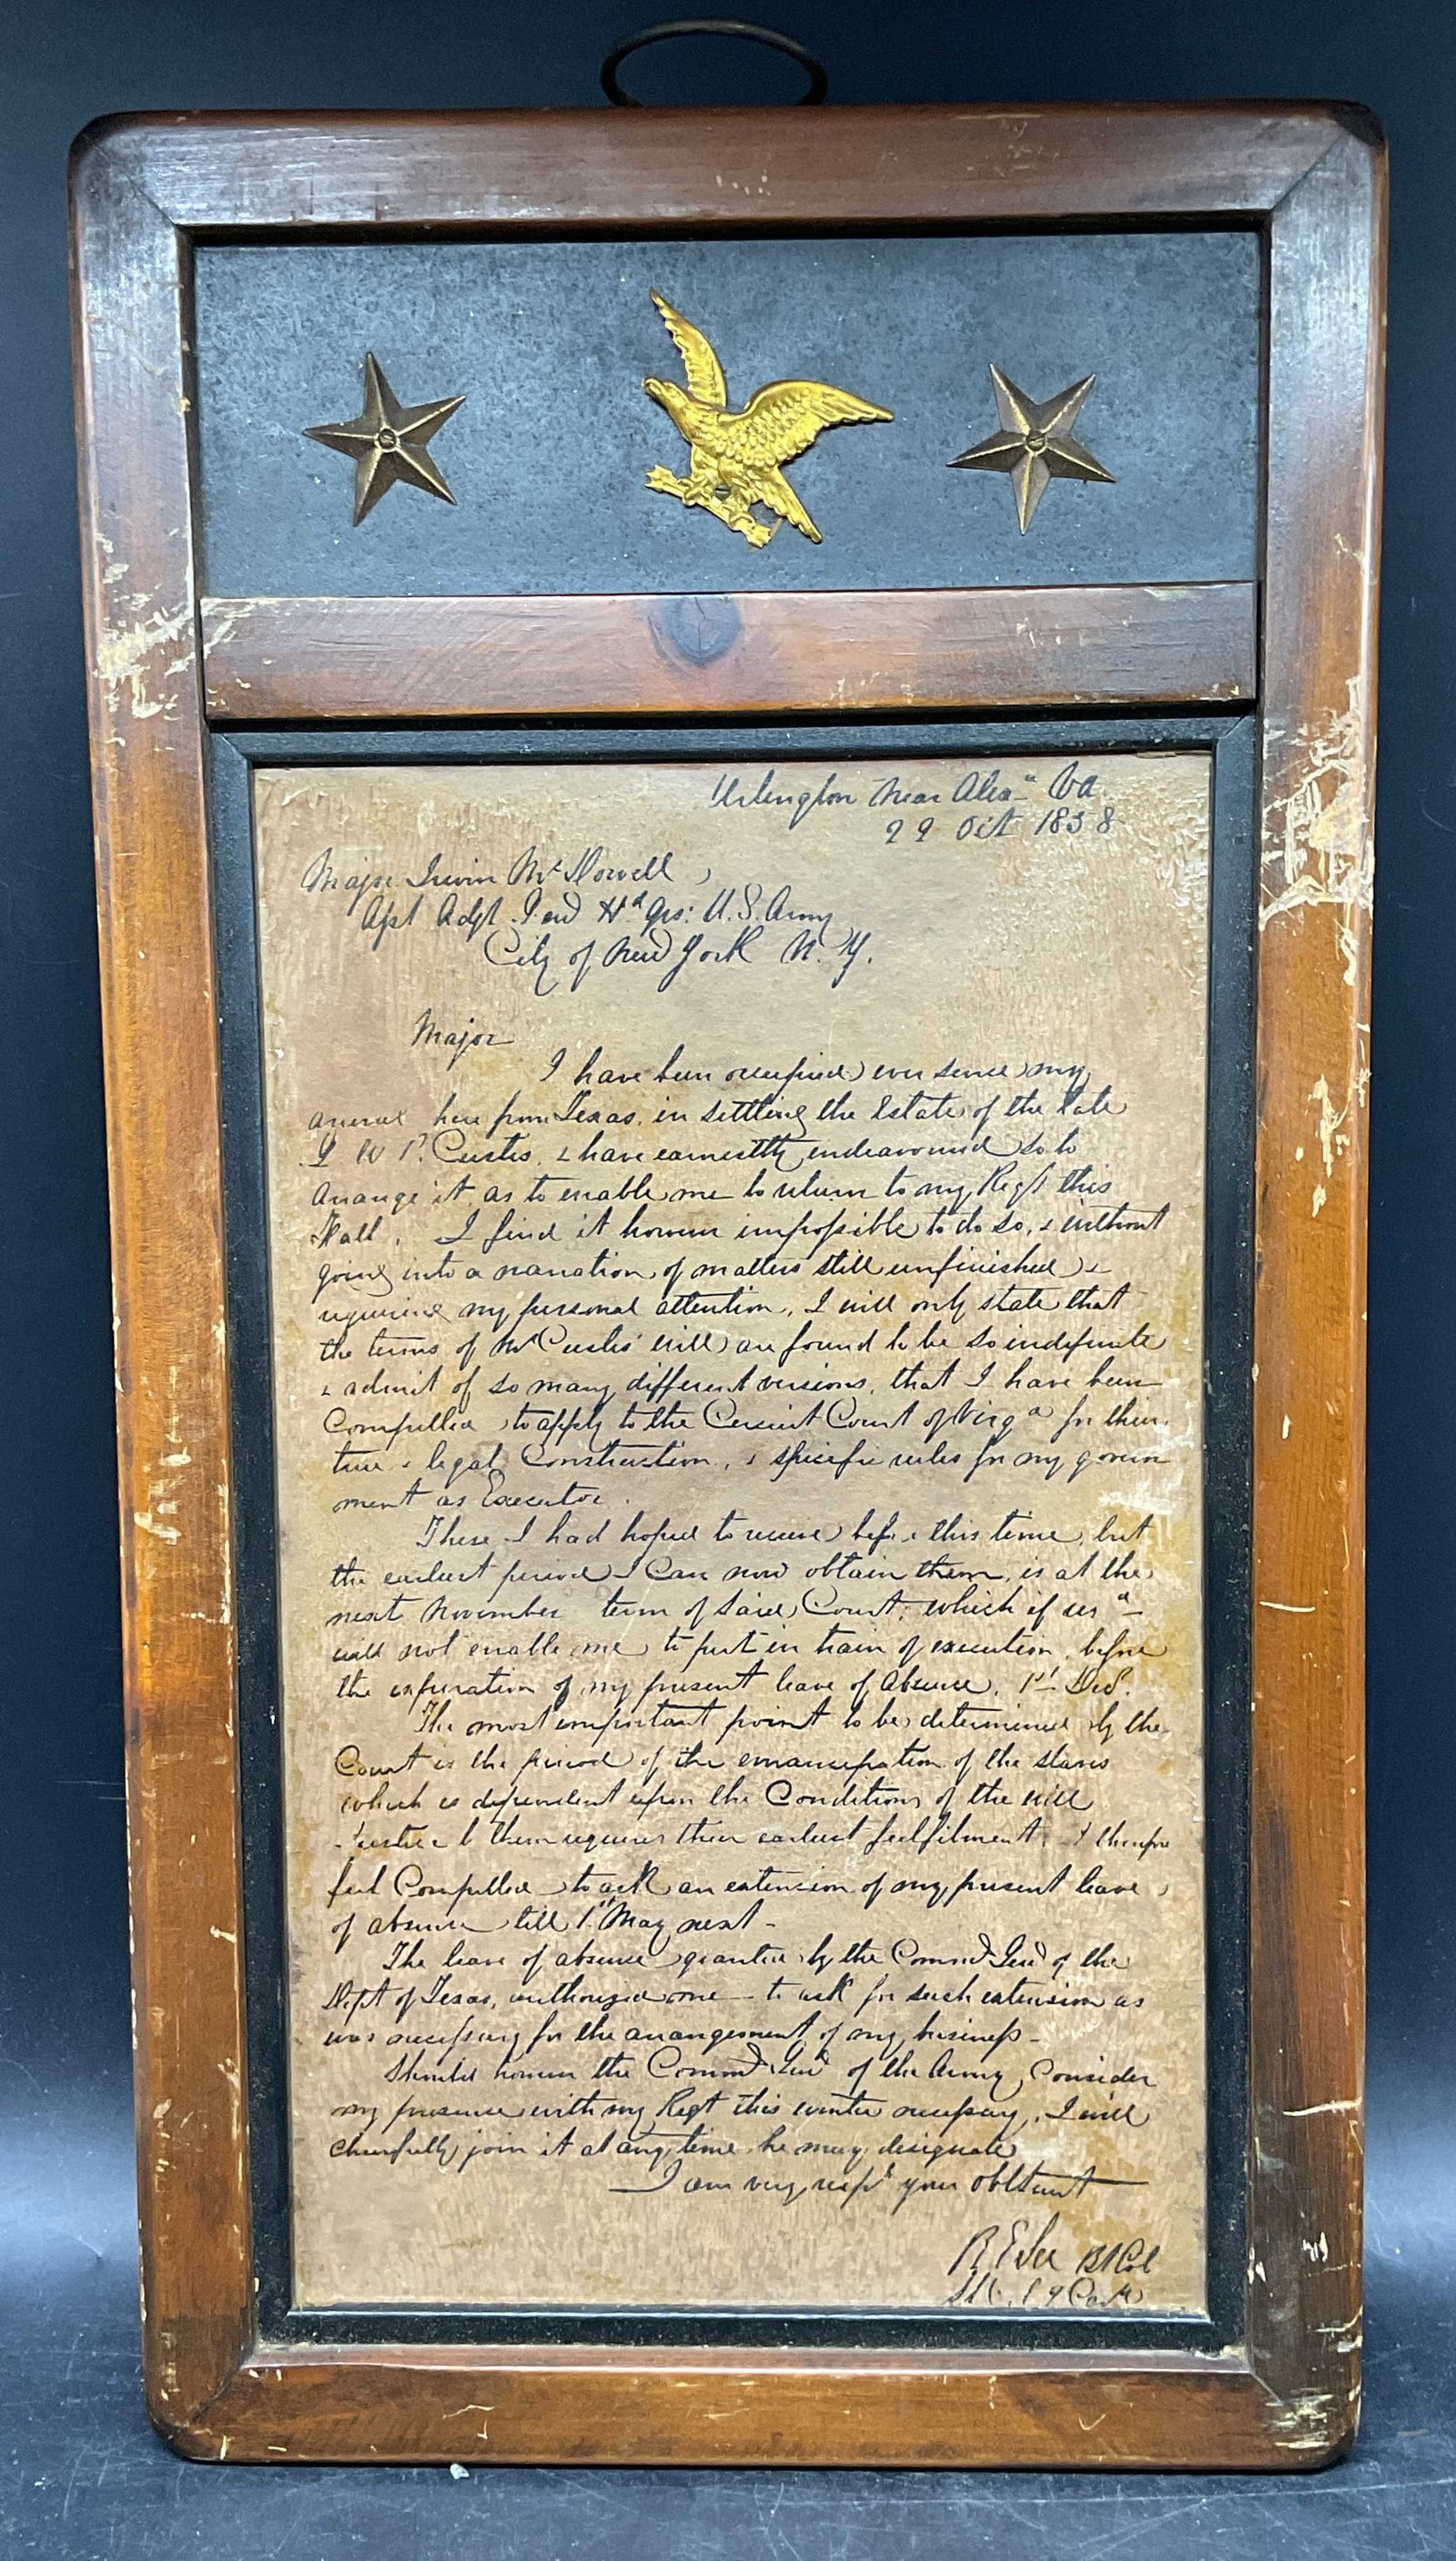 Arlington near Alexa Va
29 Oct 1858
Major Irvin McDowell
Asst Adgt Genl Hd Qrs: U.S. Army
City of New York N.Y.
Major
I have been occupied ever since my
arrival here from Texas, in settling the Estate of the late
G W P. Custis, & have earnestly endeavoured so to
arrange it as to enable me to return to my Regt this
Fall. I find it however impossible to do so, & without
going into a narration of matters still unfinished &
requiring my personal attention, I will only state that
the terms of Mr Custis' will are found to be so indefinite
& admit of so many different versions, that I have been
Compelled to apply to the Circuit Court of Virga for their
true & legal Construction, & specific rules for my govern
ment as Executor.
These I had hoped to receive before this time, but
the earliest period I Can now obtain them, is at the
next November term of said Court; which if
will not enable me to put in train of execution, before
the expiration of my present leave of absence, 1st Decr.
The most important point to be determined by the
Court is the period of the emancipation of the slaves
which is dependent upon the Conditions of the will
Justice to them requires their earliest fulfilment. I therefore
feel Compelled to ask an extension of my present leave
of absence till 1st May next -
The leave of absence granted by the Commd Genl of the
Dept of Texas, authorized me to ask for such extension as
was necessary for the arrangement of my business -
Should however the Commd Genl of the Army, Consider
my presence with my Regt this winter necessary, I will
cheerfully join it at any time he may designate
I am very respy your obt Servt
R E Lee Bt Col
Cav